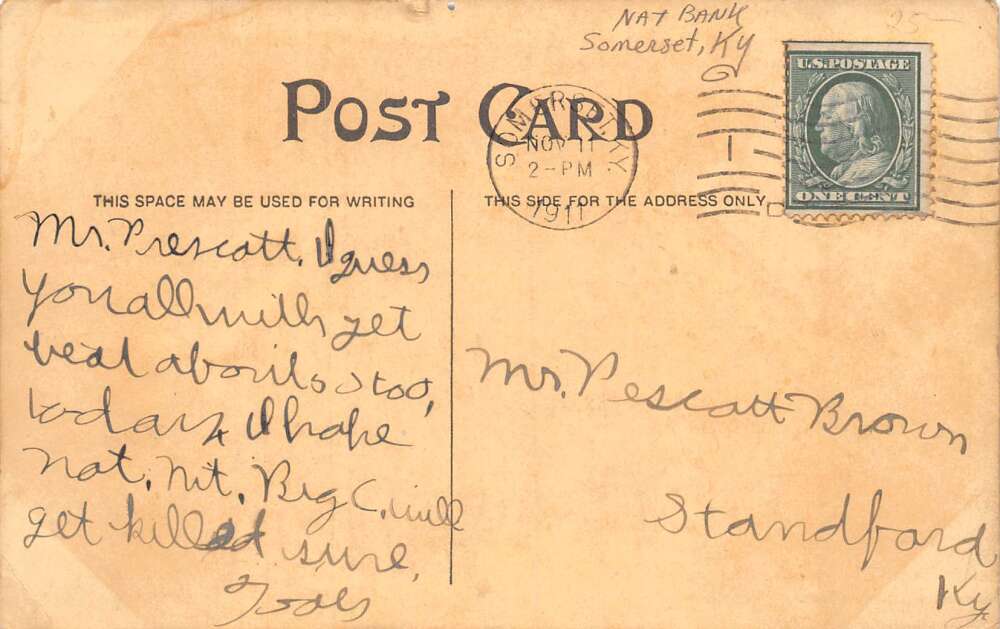 NAT BANK
Somerset, KY
U.S. POSTAGE
ONE CENT
POST CARD
SOMERSET, KY.
NOV 11
2-PM
1911
THIS SPACE MAY BE USED FOR WRITING
THIS SIDE FOR THE ADDRESS ONLY
Mr. Prescott. I guess
you all will get
beat about 5 to 0,
today, I hope
not. Nit. Big C. will
get killed sure.
Mr. Pescott Brown
Standford
Ky.